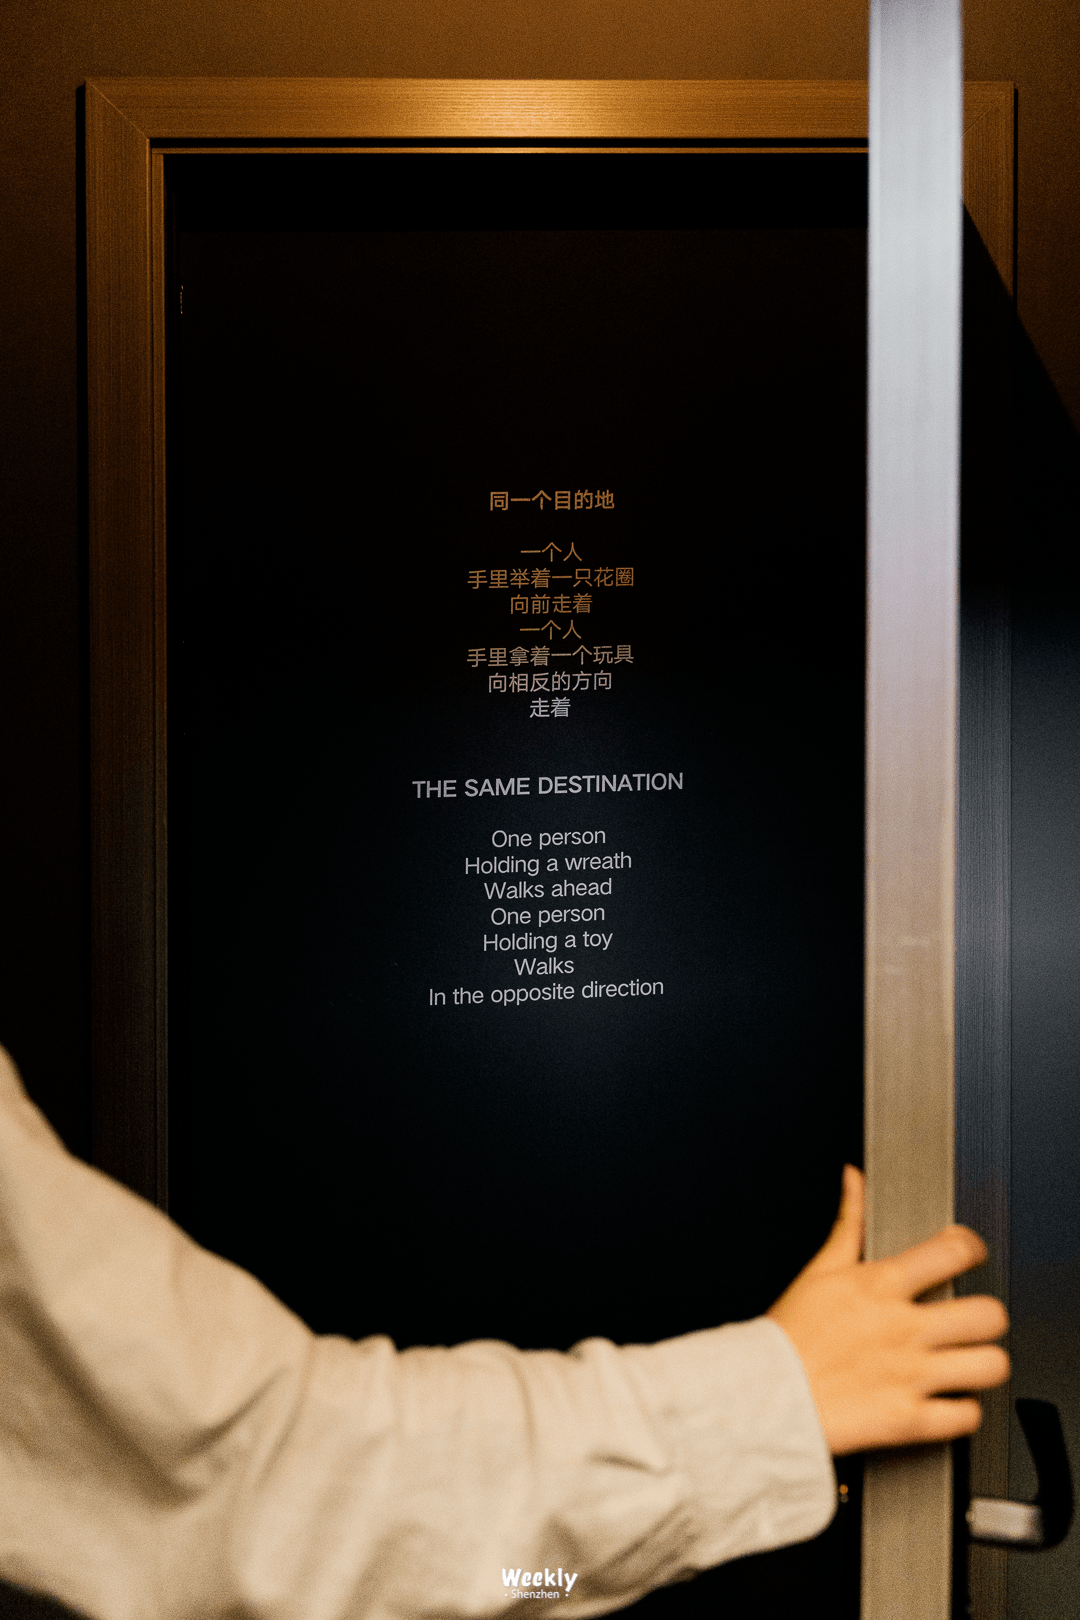 同一个目的地
一个人
手里举着一只花圈
向前走着
一个人
手里拿着一个玩具
向相反的方向
走着
THE SAME DESTINATION
One person
Holding a wreath
Walks ahead
One person
Holding a toy
Walks
In the opposite direction
Weekly
· Shenzhen ·